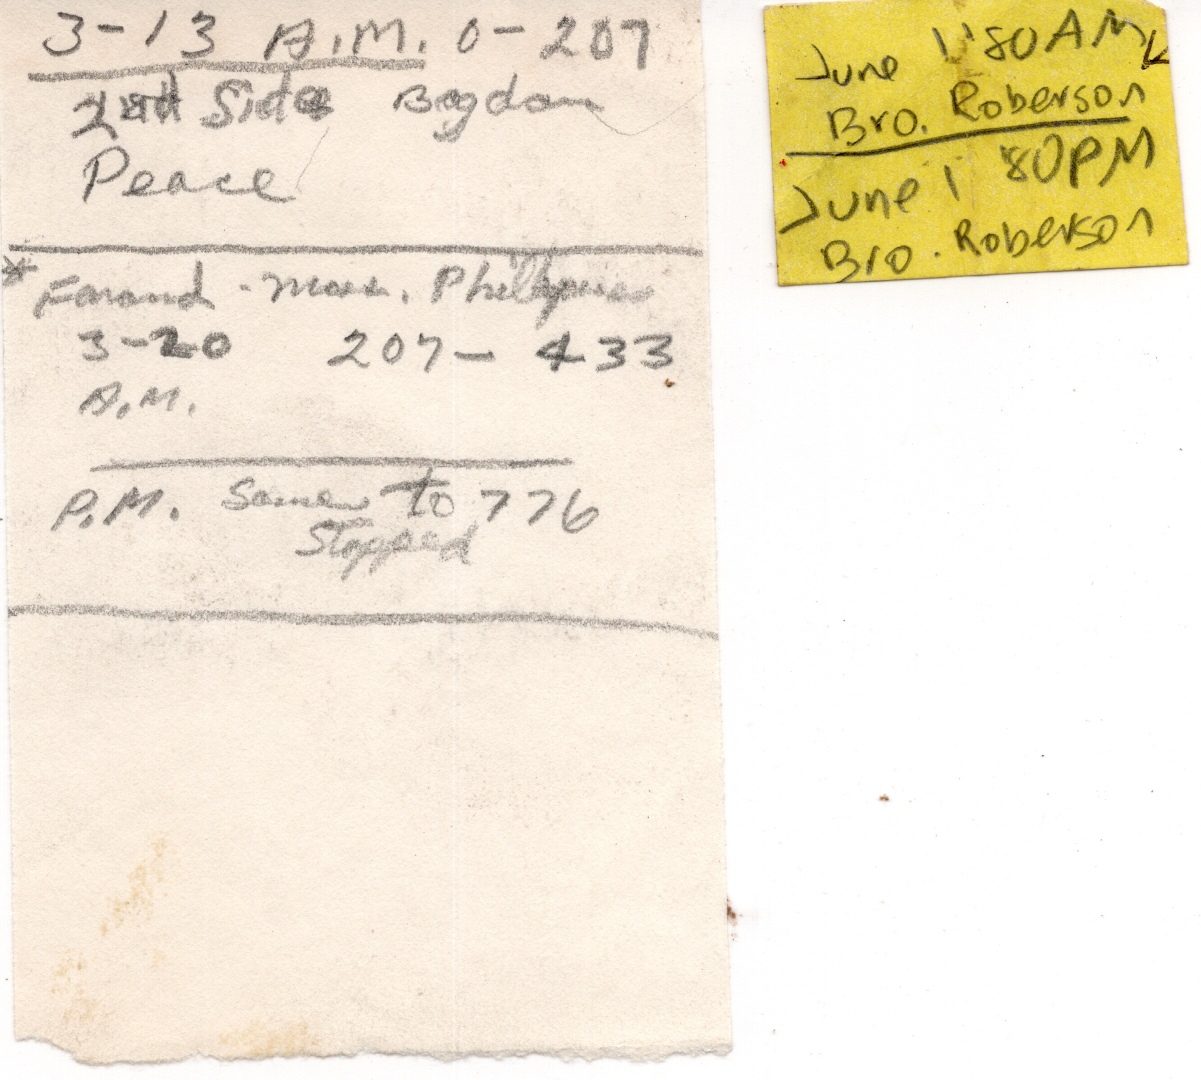 3-13 A.M. 0-207
Side Bogdan
Peace
* Farand - Phillipines
3-20 207-433
A.M.
P.M. Same to 776
Stopped
June 1 '80 AM
Bro. Roberson
June 1 '80 PM
Bro. Roberson